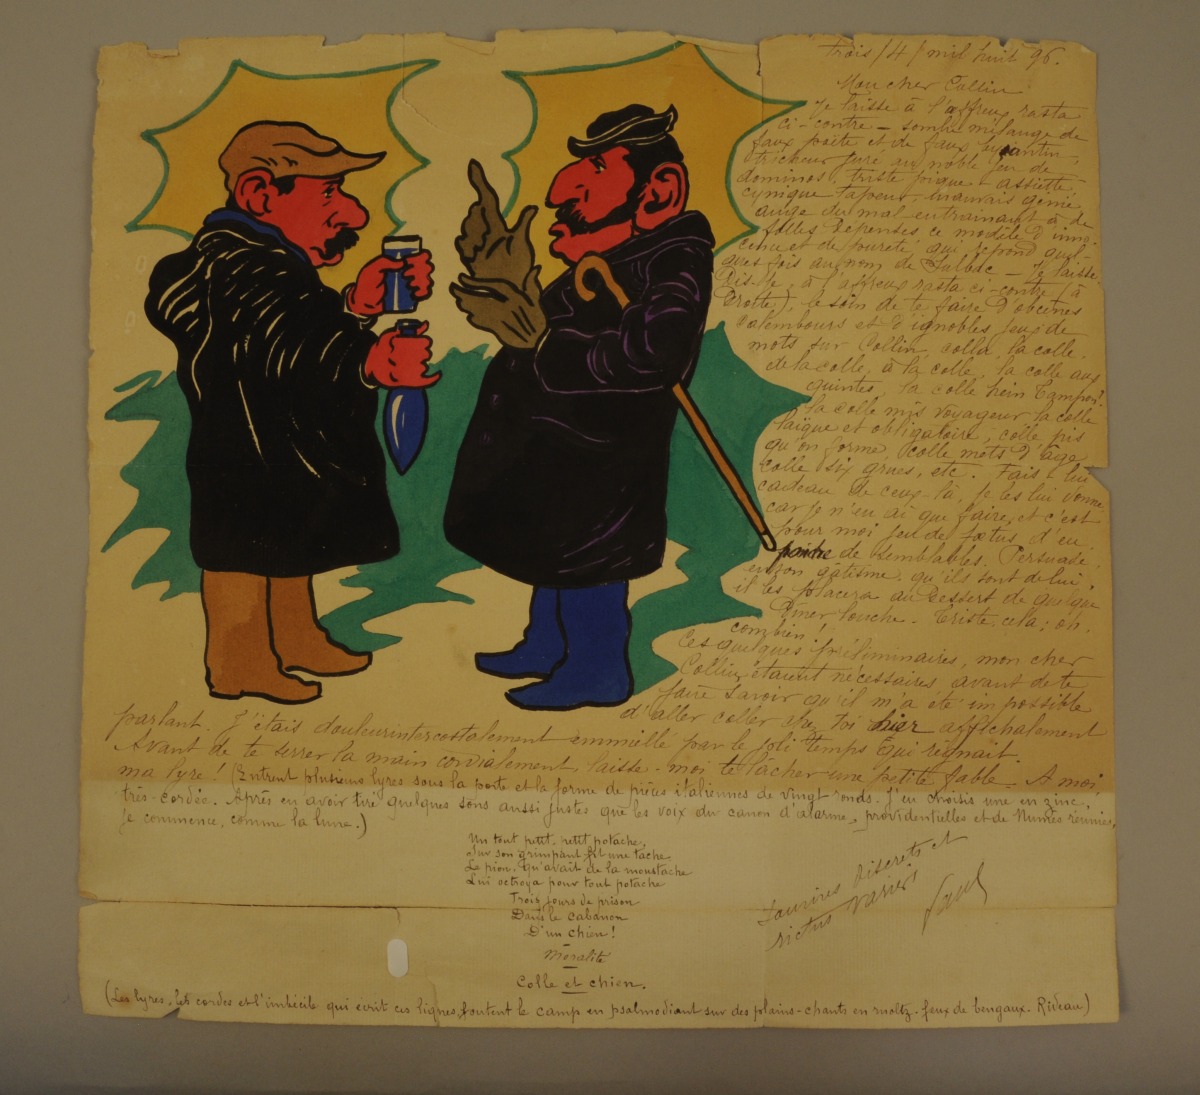 Trois /4/ mil huit 96.
Mon cher Collin
Je laisse à l'affreux rasta
ci-contre – sombre mélange de
faux poète et de faux
tricheur juré au noble jeu de
dominos, triste pique-assiette,
cynique tapeur, mauvais génie
ange du mal entrainant à de
folles dépenses ce modèle d'inno-
cence et de pureté qui répond quel-
ques fois au nom de – Je laisse
dis-je, à l'affreux rasta ci-contre (à
Trotte), le soin de te faire d'obcènes
calembours et d'ignobles jeux de
mots sur Collin, colla, la colle,
de la colle, à la colle, la colle aux
quintes, la colle hein tampon!
la colle mis voyageur la colle
laïque et obligatoire, colle pis
qu'on forme, colle mets d'âge
colle six grues, etc. Fais-lui
cadeau de ceux-là, je les lui donne
car je n'en ai que faire, et c'est
pour moi jeu de fœtus d'en
de semblables. Persuadé,
en son gâtisme, qu'ils sont de lui,
il les placera au dessert de quelque
dîner louche. Triste, cela; oh,
combien!
Ces quelques préliminaires, mon cher
Collin, étaient nécessaires avant de te
faire savoir qu'il m'a été impossible
d'aller coller chez toi hier affichalement
parlant. J'étais douleurintercostalement emmiellé par le joli temps qui régnait.
Avant de te serrer la main cordialement, laisse-moi te lâcher une petite fable. A moi
ma lyre! (Entrent plusieurs lyres sous la porte et la forme de pièces italiennes de vingt ronds. J'en choisis une en zinc,
très-cordée. Après en avoir tiré quelques sons aussi justes que les voix du canon d'alarme, providentielles et de Numès réunies,
je commence, comme la lune.)
Un tout petit, petit potache,
Sur son grimpant fit une tache
Le pion, qu'avait de la moustache
Lui octroya pour tout potache
Trois jours de prison
Dans le cabanon
D'un chien!
–
Moralité
–
Colle et chien.
Sourires discrets et
rictus variés
Paul
(Les lyres, les cordes et l'imbécile qui écrit ces lignes, foutent le camp en psalmodiant sur des plains-chants en ruoltz. feux de bengaux. Rideau)